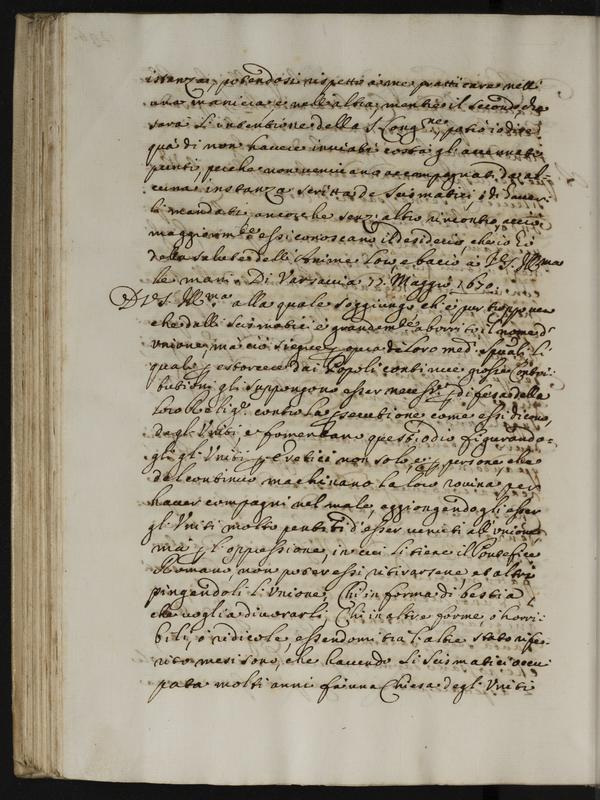 istanza, potendosi rispetto à me pratticare nell'
una maniera e nell'altra, mentre il secondo, che
sarà l'intentione della S. Cong.ne,
quà di non havere inviati costà gli accennati
punti, perche non venivano accompagnati da al-
cuna instanza scritta de Scismatici, i di
li mandati, ancorche senz'altro riscontro, acciò
maggiorm.te essi conoscano il desiderio, che io hò
della salute dell'Anime loro e bacio à V.S. Ill.ma
le mani. Di Varsavia 17. Maggio 1670.
Di V.S. Ill.ma alla quale soggiungo, ch'è pur troppo vero
che dalli Scismatici è grandem.te aborrito il nome d'
Unione, ma ciò siegue per opera de loro med.
quali per estorcere dai Popoli continue grosse Contri-
butioni gli suppongono esser necess.e per difesa della
loro Relig.e contro la persecutione come essi dicono,
degl'Uniti, e fomentano quest'odio figurando-
gli gl'Uniti per Eretici non solo, e per persone, che
del continuo machinano la loro rovina per
haver compagni nel male, aggiongendogli esser
gl'Uniti molto pentiti d'esser venuti all'Unione
mà per l'oppressione, in cui li tiene il Pontefice
Romano, non poter essi ritirarsene, et altri
pingendoli l'Unione, Chi in forma di bestia
che voglia divorarli, Chi in altre forme, ò horri-
bili, ò ridicole, essendomi tra l'altre stato rife-
rito mesi sono, che havendo li Scismatici occu-
pata molti anni fà una Chiesa degl'Uniti